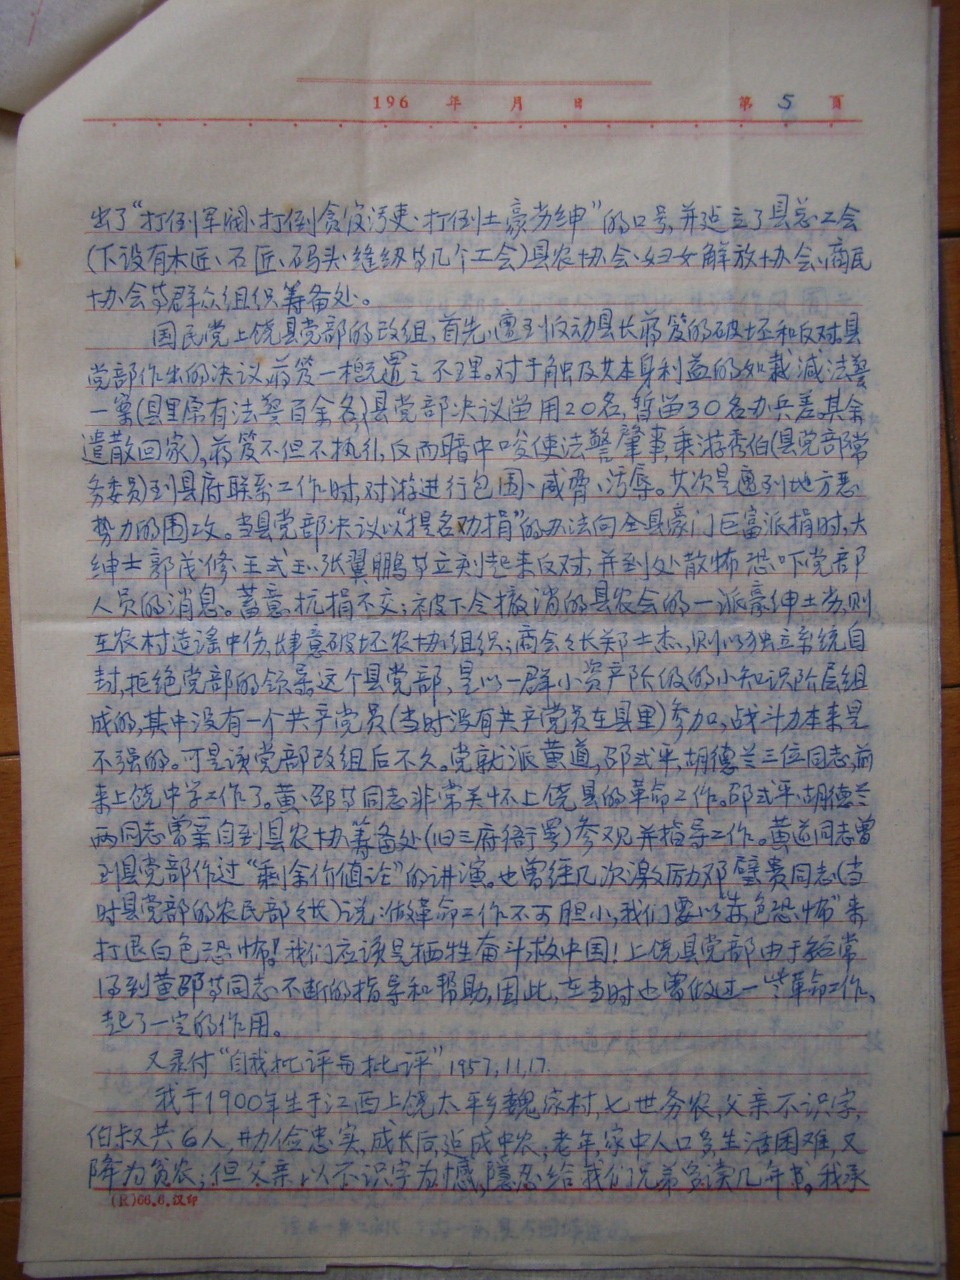 196 年 月 日 第 5 頁
出了“打倒军阀、打倒贪官污吏、打倒土豪劣绅”的口号,并建立了县总工会
(下设有木匠、石匠、码头、缝纫等几个工会)县农协会、妇女解放协会、商民
协会等群众组织筹备处。
国民党上饶县党部的改组,首先,遭到反动县长蒋笈的破坏和反对,县
党部作出的决议,蒋笈一概置之不理。对于触及其本身利益的如裁减法警
一案(县里原有法警百余名,)县党部决议留用20名,暂留30名办兵差,其余
遣散回家),蒋笈不但不执行,反而暗中唆使法警肇事,乘游秀伯(县党部常
务委员)到县府联系工作时,对游进行包围、威胁、污辱。其次是遭到地方恶
势力的围攻。当县党部决议以“提名劝捐”的办法向全县豪门巨富派捐时,大
绅士郭茂修、王式玉、张翼鹏等立刻起来反对,并到处散怖恐吓党部
人员的消息。蓄意抗捐不交;被下令撤消的县农会的一派豪绅士劣,则
在农村造谣中伤,肆意破坏农协组织;商会々长郑士杰,则以独立系统自
封,拒绝党部的领导,这个县党部,是以一群小资产阶级的小知识阶层组
成的,其中没有一个共产党员(当时没有共产党员在县里)参加,战斗力本来是
不强的。可是该党部改组后不久。党就派黄道,邵式平,胡德兰三位同志,前
来上饶中学工作了。黄、邵等同志非常关怀上饶县的革命工作。邵式平、胡德兰
两同志曾亲自到县农协筹备处(旧三府衙署)参观并指导工作。黄道同志曾
到县党部作过“剩余价值论”的讲演。也曾经几次激励邓璧贵同志(当
时县党部的农民部々长)说:做革命工作不可胆小,我们要以“赤色恐怖”来
打退白色恐怖!我们应该是牺牲奋斗救中国!上饶县党部由于经常
得到黄邵等同志不断的指导和帮助,因此,在当时也曾做过一些革命工作、
起了一定的作用。
又录付“自我批评与批评”1957,11,17.
我于1900年生于江西上饶太平乡魏家村,七世务农,父亲不识字,
伯叔共6人,勤俭忠实,成长后造成中农;老年,家中人口多,生活困难,又
降为贫农;但父亲以不识字为憾,隐忍给我们兄弟多读几年书。我承
(R)66.6.汉印